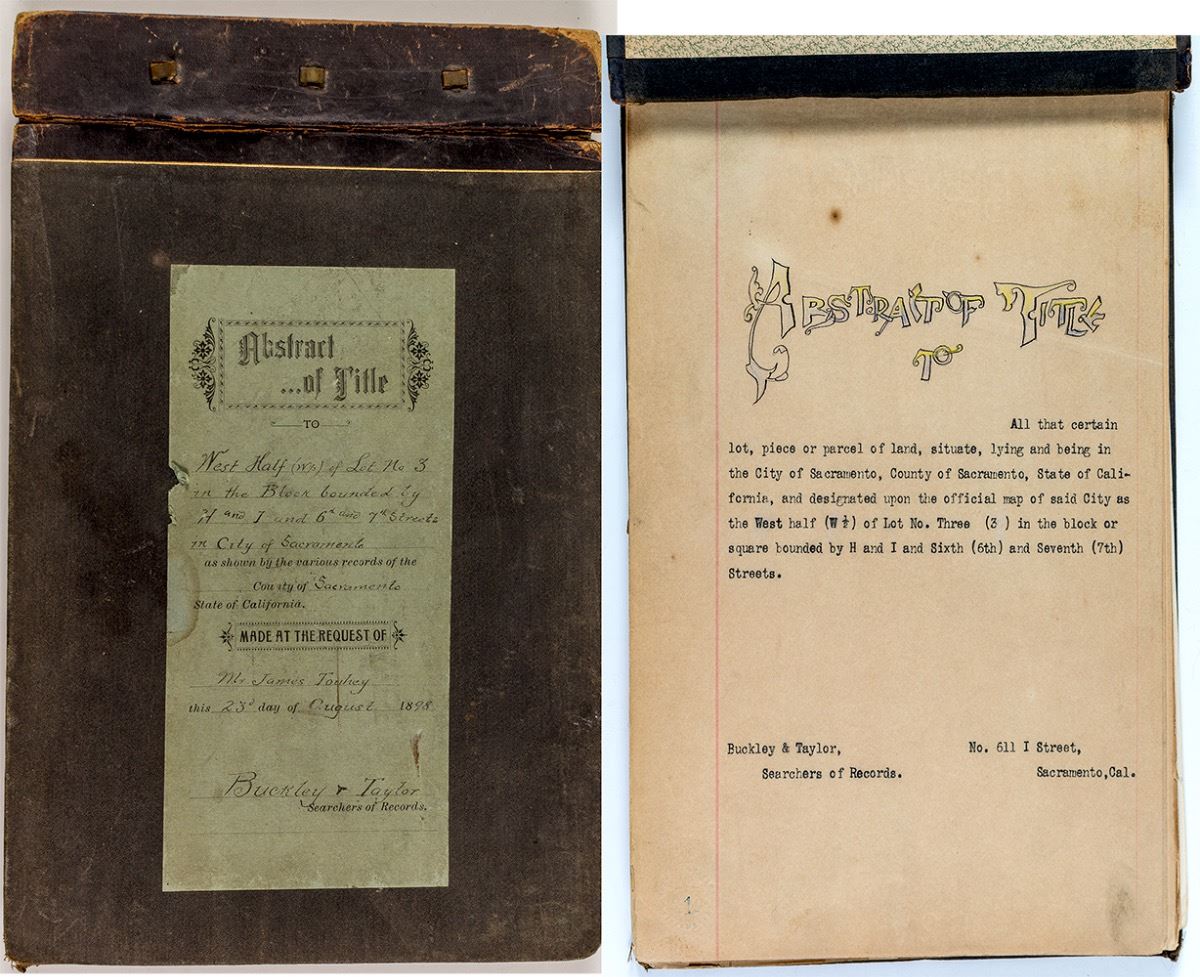 Abstract
...of Title
TO
West Half (W½) of Lot No 3
in the Block bounded by
H and I and 6th and 7th Streets
in City of Sacramento
as shown by the various records of the
County of Sacramento
State of California.
MADE AT THE REQUEST OF
Mr James Touhey
this 23d day of August 1898
Buckley & Taylor
Searchers of Records.
ABSTRACT OF TITLE
TO
All that certain
lot, piece or parcel of land, situate, lying and being in
the City of Sacramento, County of Sacramento, State of Cali-
fornia, and designated upon the official map of said City as
the West half (W ½) of Lot No. Three (3 ) in the block or
square bounded by H and I and Sixth (6th) and Seventh (7th)
Streets.
Buckley & Taylor, No. 611 I Street,
Searchers of Records. Sacramento,Cal.
1